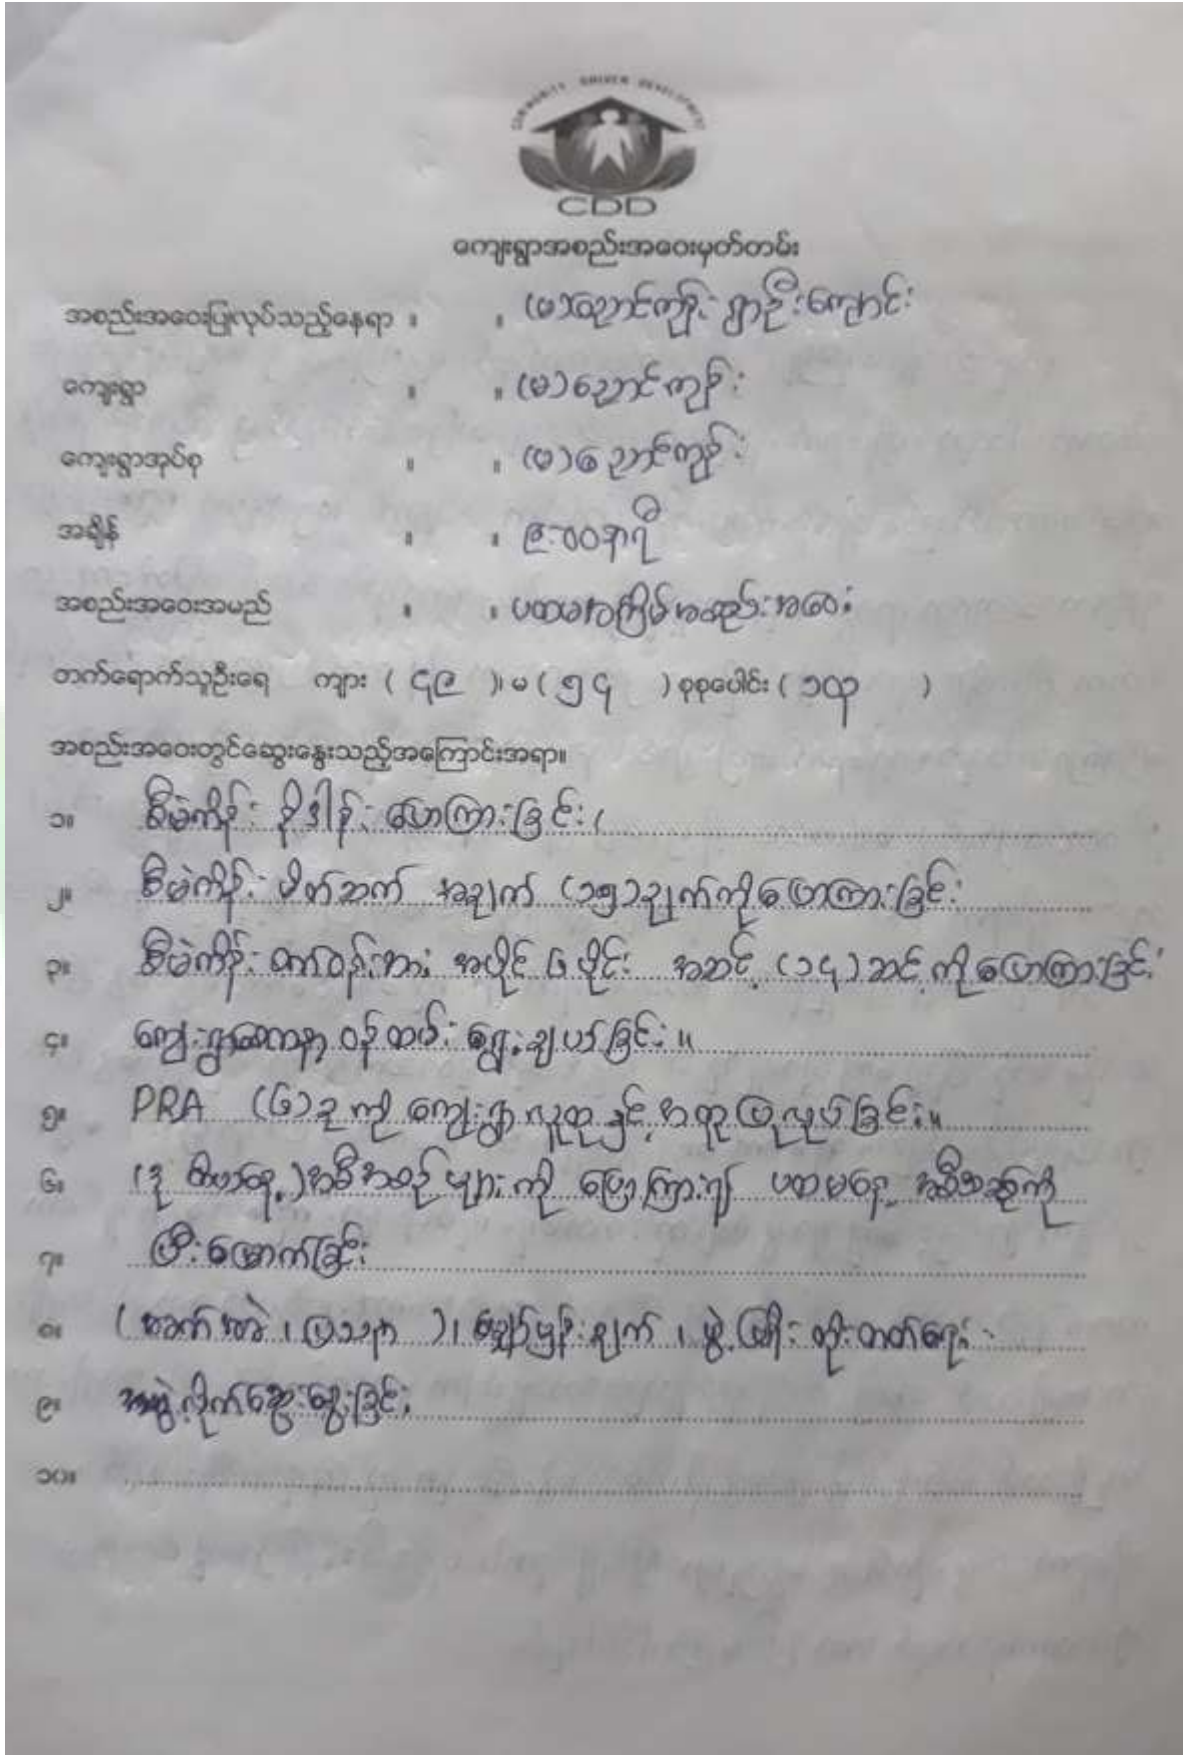 COMMUNITY DRIVEN DEVELOPMENT
CDD
ကျေးရွာအစည်းအဝေးမှတ်တမ်း
အစည်းအဝေးပြုလုပ်သည့်နေရာ ။ ။ (မ)ညောင်ကျိုး ရွာဦးကျောင်း
ကျေးရွာ ။ ။ (မ)ညောင်ကျိုး
ကျေးရွာအုပ်စု ။ ။ (မ)ညောင်ကျိုး
အချိန် ။ ။ ၉:၀၀နာရီ
အစည်းအဝေးအမည် ။ ။ ပထမအကြိမ်အစည်းအဝေး
တက်ရောက်သူဦးရေ ကျား ( ၄၉ )၊ မ ( ၅၄ ) စုစုပေါင်း ( )
အစည်းအဝေးတွင်ဆွေးနွေးသည့်အကြောင်းအရာ။
၁။ စီမံကိန်း နိဒါန်း ပြောကြားခြင်း၊
၂။ စီမံကိန်း မိတ်ဆက် အချက် (၁၅)ချက်ကိုပြောကြားခြင်း
၃။ စီမံကိန်း အပိုင် ၆ ပိုင်း အဆင့် (၁၄)ဆင့်ကိုပြောကြားခြင်း
၄။ ကျေးရွာစေတနာ့ဝန်ထမ်း ရွေးချယ်ခြင်း။
၅။ PRA (၆)ခုကို ကျေးရွာလူထုနှင့်အတူပြုလုပ်ခြင်း။
၆။ (ဒုတိယနေ့)အစီအစဉ်များကို ပြောကြား၍ ပထမနေ့ အစီအစဉ်ကို
၇။ ပြီးမြောက်ခြင်း
၈။ (အခက်အခဲ၊ ပြဿနာ )၊ မျှော်မှန်းချက် ၊ ဖွံ့ဖြိုးတိုးတက်ရေး
၉။ အဖွဲ့လိုက်ဆွေးနွေးခြင်း
၁၀။